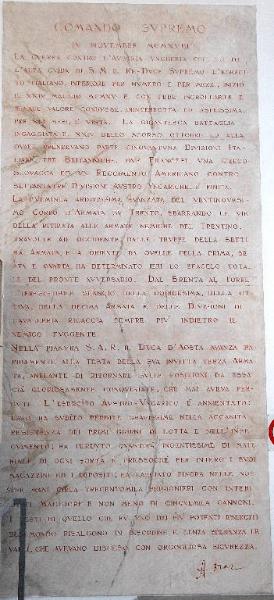 COMANDO SVPREMO
IV NOVEMBER MCMXVIII
LA GVERRA CONTRO L'AVSTRIA VNGHERIA CHE SOTTO
L'ALTA GVIDA DI S.M. IL RE DVCE SVPREMO L'ESERCI
TO ITALIANO, INFERIORE PER NVMERO E PER MEZZI, INIZIÒ
IL XXIV MAGGIO MCMXV E CON FEDE INCROLLABILE E
TENACE VALORE CONDVSSE, ININTERROTTA ED ASPRISSIMA,
PER MESI È VINTA. LA GIGANTESCA BATTAGLIA
INGAGGIATA IL XXIV DELLO SCORSO OTTOBRE ED ALLA
QVALE PRENDEVANO PARTE CINQVANTVNA DIVISIONI ITA
LIANE, TRE BRITANNICHE, DVE FRANCESI VNA CZECO
SLOVACCA ED VN REGGIMENTO AMERICANO CONTRO
SETTANTATRE DIVISIONI AVSTRO VNGARICHE, È FINITA.
LA FVLMINEA ARDITISSIMA AVANZATA DEL VENTINOVESI
MO CORPO D'ARMATA SV TRENTO, SBARRANDO LE VIE
DELLA RITIRATA ALLE ARMATE NEMICHE DEL TRENTINO,
TRAVOLTE AD OCCIDENTE DALLE TRVPPE DELLA SETTI
MA ARMATA E A ORIENTE DA QVELLE DELLA PRIMA, SE
STA E QVARTA HA DETERMINATO IERI LO SFACELO TOTA
LE DEL FRONTE AVVERSARIO. DAL BRENTA AL TORRE
SLANCIO DELLA DODICESIMA, DELLA OT
TAVA, DELLA DECIMA ARMATA E DELLE DIVISIONI DI
CAVALLERIA RICACCIA SEMPRE PIV INDIETRO IL
NEMICO FVGGENTE
NELLA PIANVRA S.A.R. IL DVCA D'AOSTA AVANZA RA
PIDAMENTE ALLA TESTA DELLA SVA INVITTA TERZA ARMA
TA, ANELANTE DI RITORNARE SVLLE POSIZIONI DA ESSA
GIÀ GLORIOSAMENTE CONQVISTATE, CHE MAI AVEVA PER
DVTE. L'ESERCITO AVSTRO-VNGARICO È ANNIENTATO:
ESSO HA SVBITO PERDITE GRAVISSIME NELLA ACCANITA
RESISTENZA DEI PRIMI GIORNI DI LOTTA E NELL'INSE
GVIMENTO; HA PERDVTO QVANTITÀ INGENTISSIME DI MATE
RIALE DI OGNI SORTA E PRESSOCHÉ PER INTERO I SVOI
MAGAZZINI ED I DEPOSITI; HA LASCIATO FINORA NELLE NO
STRE MANI CIRCA TRECENTOMILA PRIGIONIERI CON INTERI
STATI MAGGIORI E NON MENO DI CINQVEMILA CANNONI.
I RESTI DI QVELLO CHE FV VNO DEI PIV POTENTI ESERCITI
DEL MONDO RISALGONO IN DISORDINE E SENZA SPERANZA LE
VALLI, CHE AVEVANO DISCESO CON ORGOGLIOSA SICVREZZA.
A DIAZ